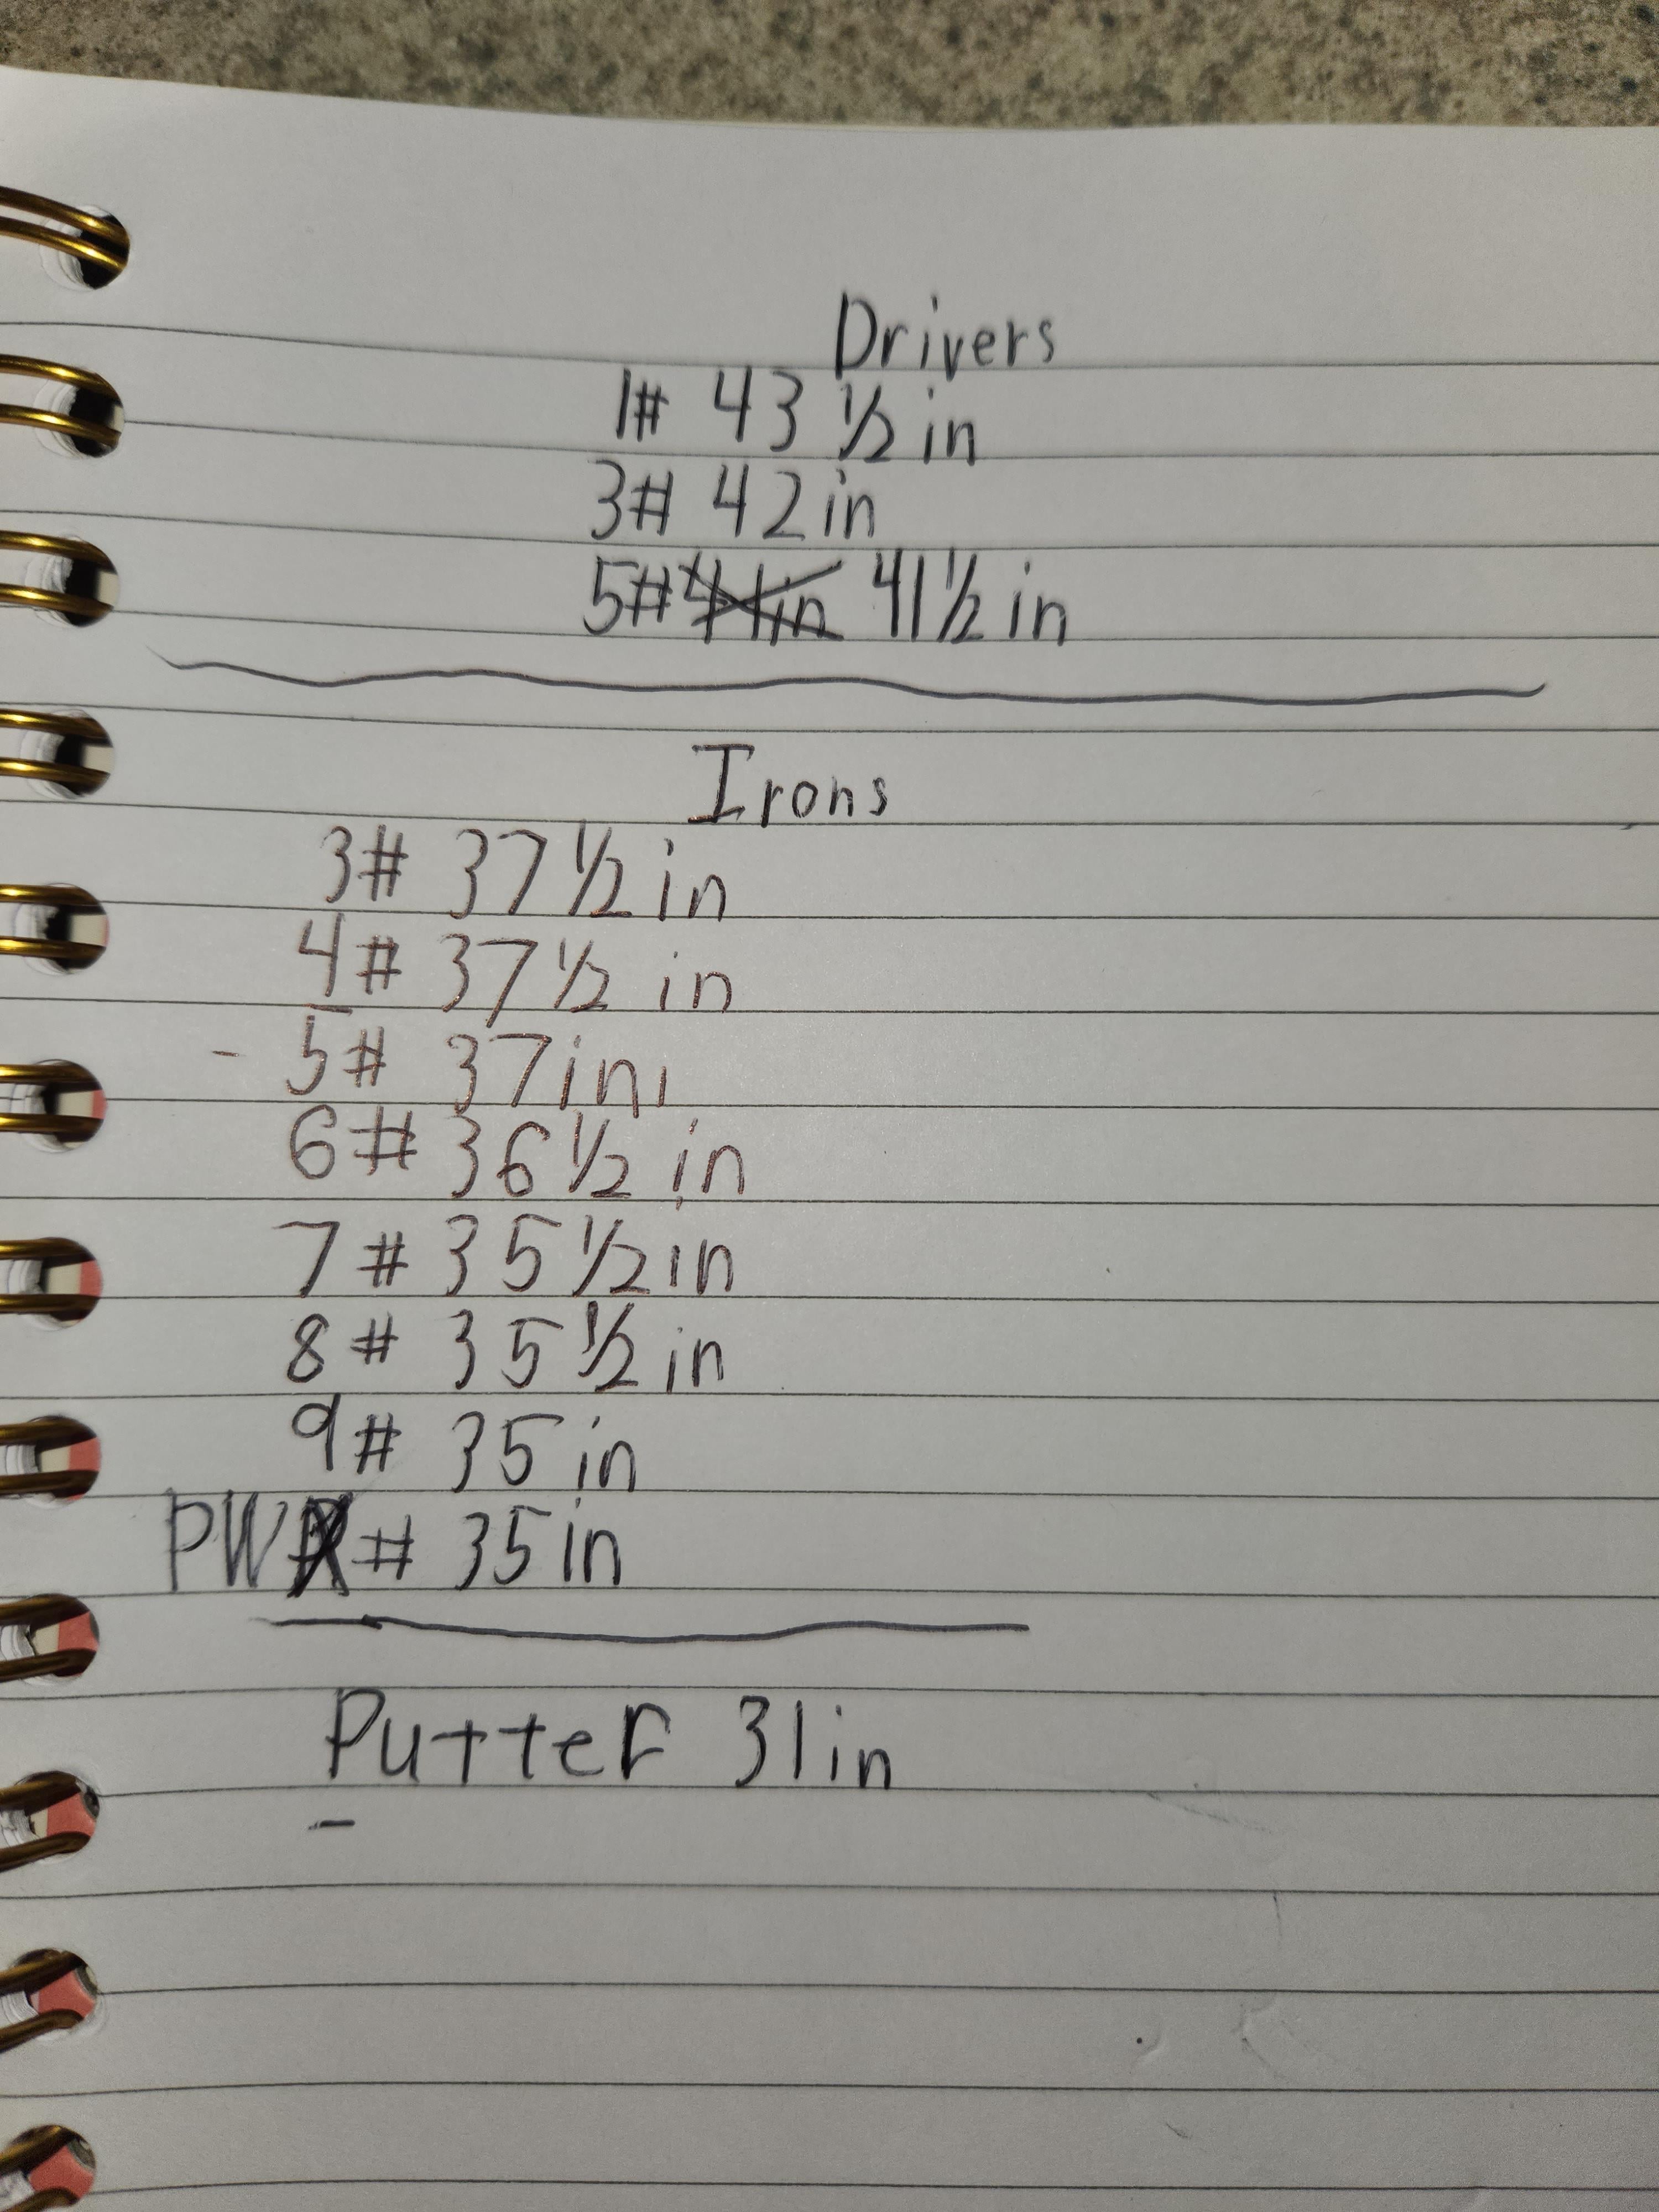 Drivers
1# 43 1/2 in
3# 42in
5# 41in 41 1/2 in
Irons
3# 37 1/2 in
4# 37 1/2 in
- 5# 37in
6# 36 1/2 in
7# 35 1/2 in
8# 35 1/2 in
9# 35 in
PW # 35in
Putter 31in
-